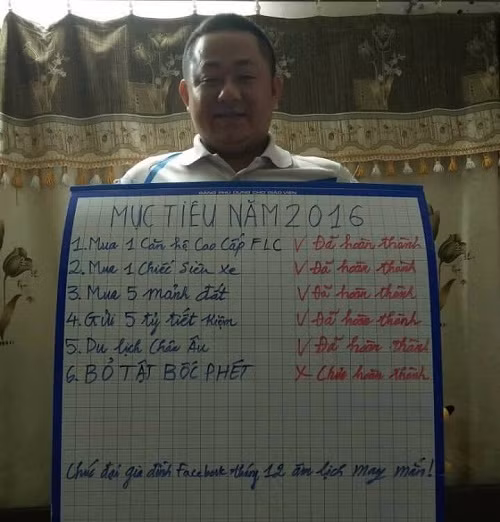 BẢNG PHỤ DÙNG CHO GIÁO VIÊN
MỤC TIÊU NĂM 2016
1. Mua 1 Căn hộ Cao Cấp FLC V Đã hoàn thành
2. Mua 1 Chiếc Siêu xe V Đã hoàn thành
3. Mua 5 mảnh đất V Đã hoàn thành
4. Gửi 5 tỷ tiết kiệm V Đã hoàn thành
5. Du lịch Châu Âu V Đã hoàn thành
6. BỎ TẬT BỐC PHÉT X Chưa hoàn thành
Chúc đại gia đình Facebook tháng 12 âm lịch may mắn!